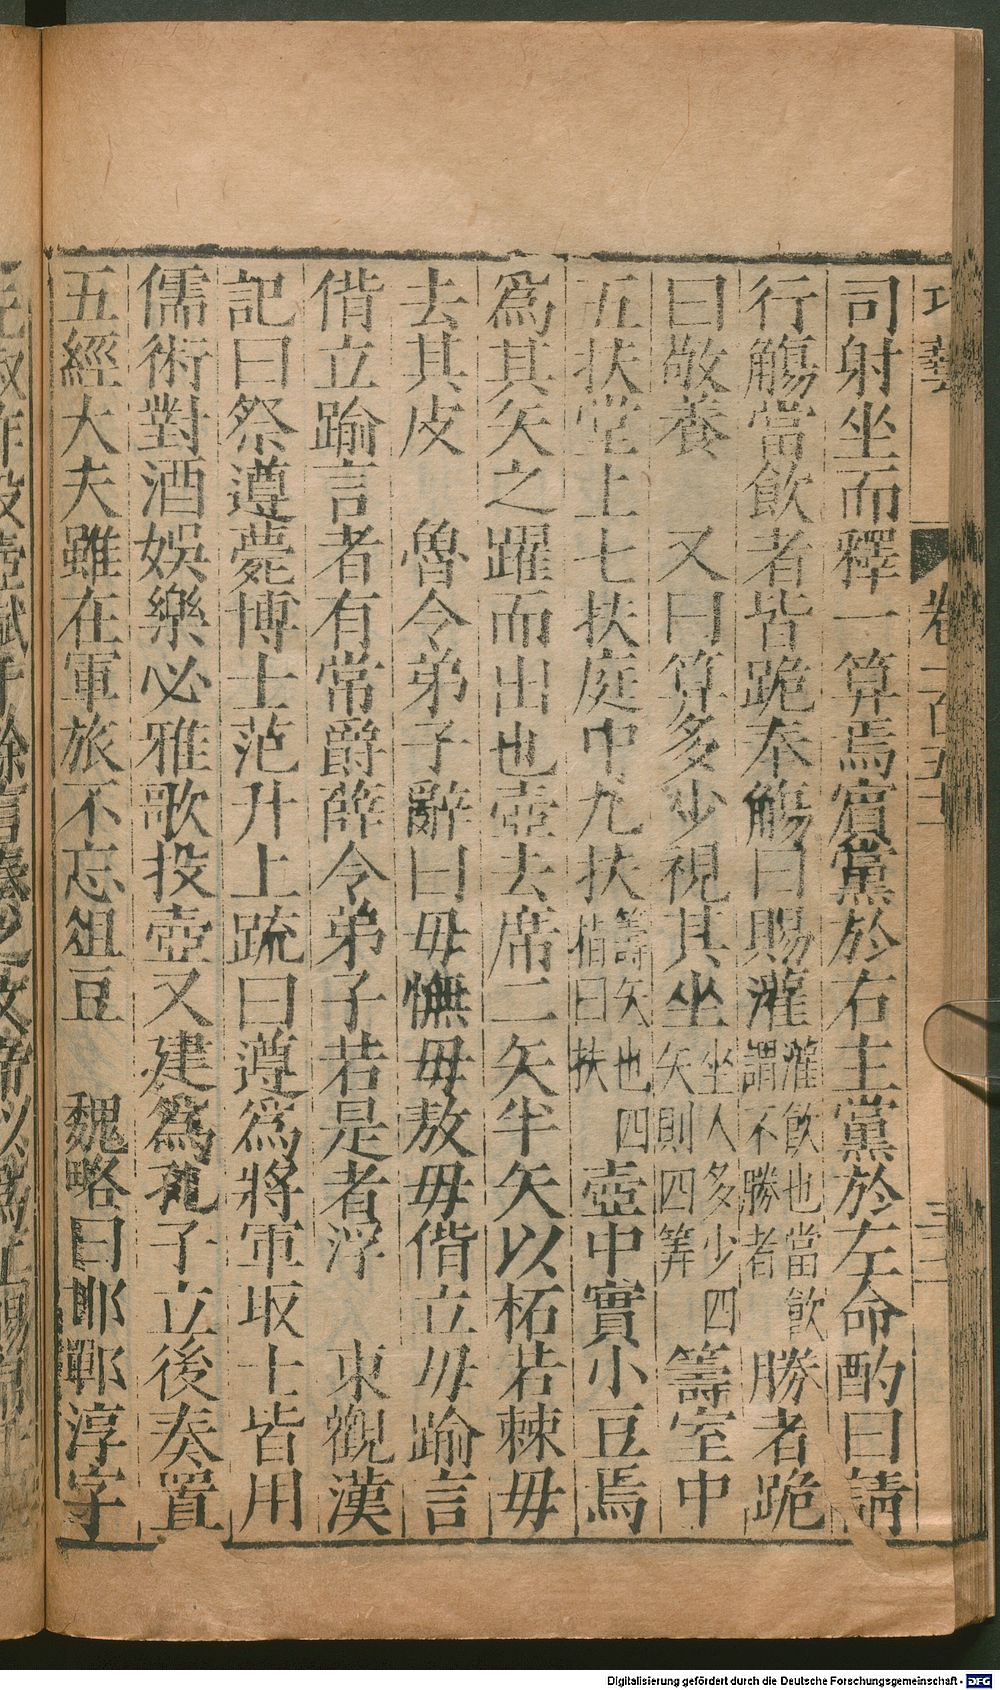 司射坐而釋一算焉賓黨於右主黨於左命酌曰請
行觴當飲者皆跪奉觴曰賜灌灌飲也當飲謂不勝者勝者跪
曰敬養　又曰算多少視其坐坐人多少四矢則四筭籌室中
五扶堂上七扶庭中九扶籌矢也四指曰扶壺中實小豆焉
為其矢之躍而出也壺去席二矢半矢以柘若棘毋
去其皮　魯令弟子辭曰毋憮毋敖毋偕立毋踰言
偕立踰言者有常爵薛令弟子若是者浮　東觀漢
記曰祭遵薨博士范升上疏曰遵為將軍取士皆用
儒術對酒娛樂必雅歌投壺又建為孔子立後奏置
五經大夫雖在軍旅不忘俎豆　魏略曰邯鄲淳字
巧藝　卷一百五十　三
Digitalisierung gefördert durch die Deutsche Forschungsgemeinschaft - DFG